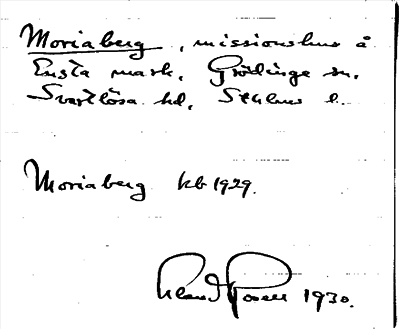 Moriaberg, missionshus å
Ensta mark, Grödinge sn.
Svartlösa hd, Sthlms l.
Moriaberg kb 1929.
1930.